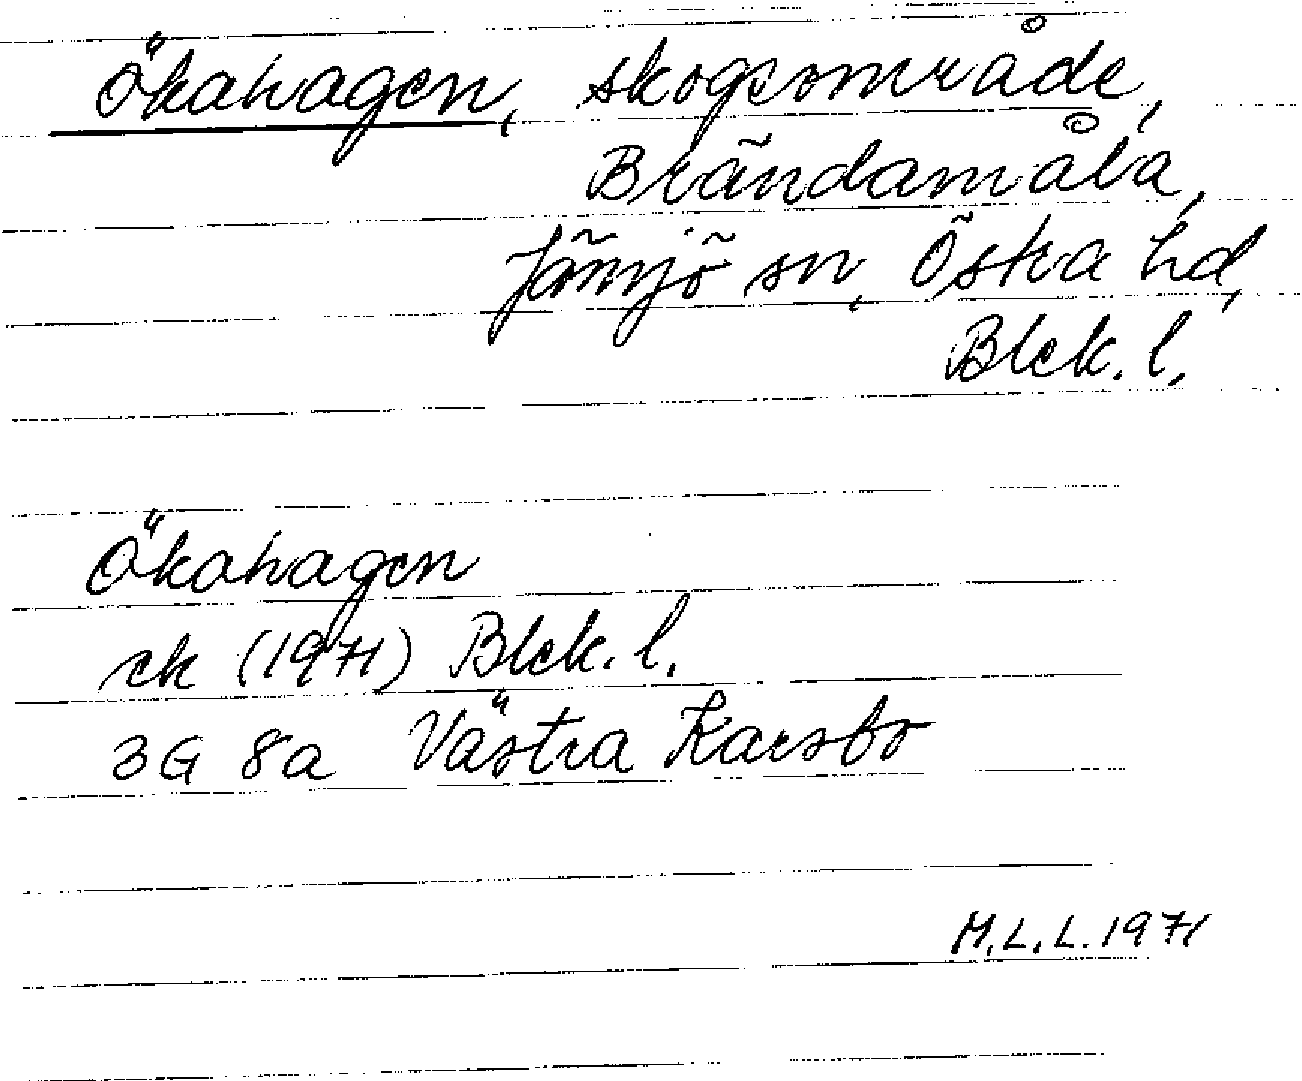 Ökahagen, skogsområde,
Brändamåla,
Jämjö sn, Östra hd,
Blek. l.
Ökahagen
ek (1971) Blek. l.
3G 8a Västra Karsbo
M.L.L. 1971